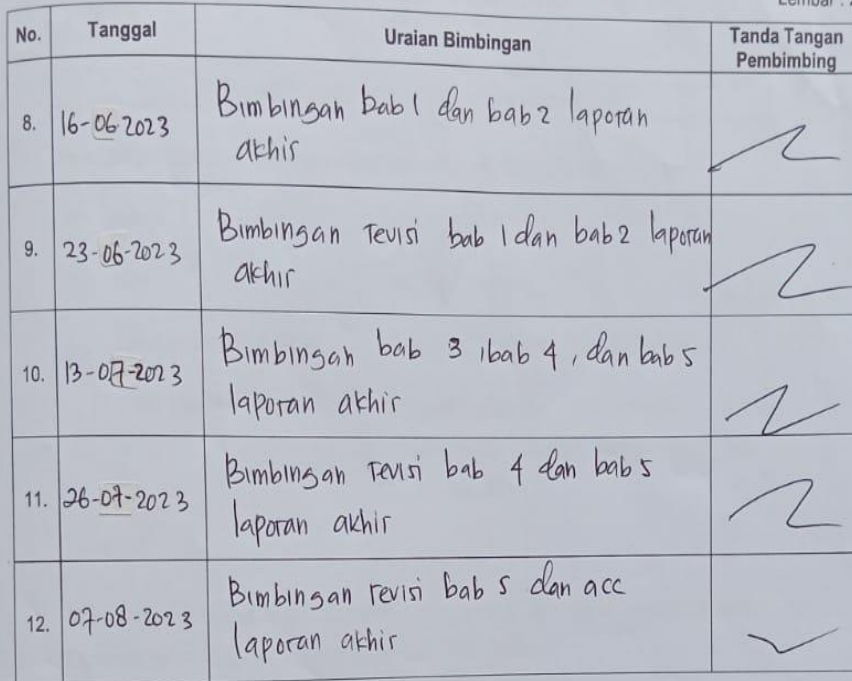 No. Tanggal Uraian Bimbingan Tanda Tangan
Pembimbing
8. 16-06-2023 Bimbingan bab 1 dan bab 2 laporan
akhir
9. 23-06-2023 Bimbingan revisi bab 1 dan bab 2 laporan
akhir
10. 13-07-2023 Bimbingan bab 3, bab 4, dan bab 5
laporan akhir
11. 26-07-2023 Bimbingan revisi bab 4 dan bab 5
laporan akhir
12. 07-08-2023 Bimbingan revisi bab 5 dan acc
laporan akhir